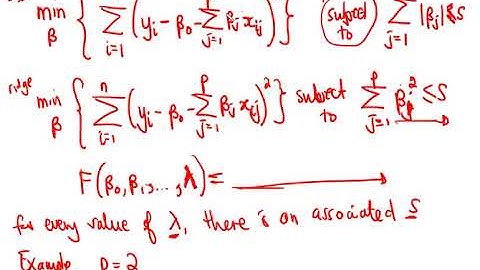 min β { Σ i=1 ( yi − β0 − Σ j=1 βj xij ) } subject to Σ j=1 |βj| ≤ S
ridge min β { Σ i=1 n ( yi − β0 − Σ j=1 p βj xij )² } subject to Σ j=1 p βj² ≤ S
F(β0, β1, ..., λ) =
for every value of λ, there is an associated S
Example p = 2